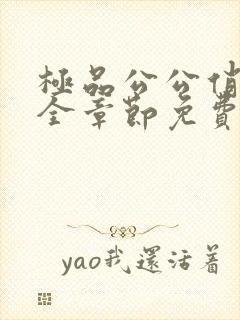 極品公公俏
全章節免費
yao我還活着